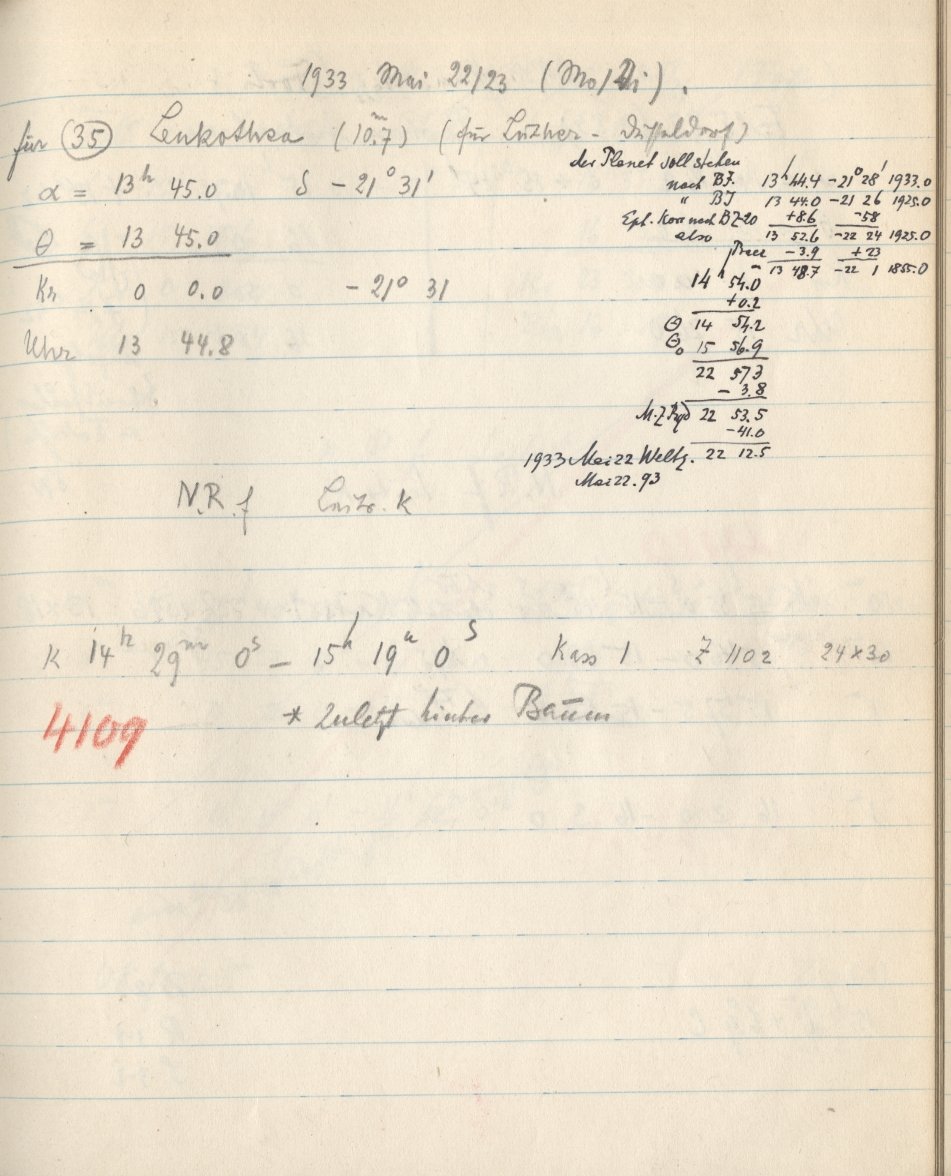 1933 Mai 22/23 (Mo/Di).
für (35) Leukothea (10.ᵐ7) (für Luther - Düsseldorf)
α = 13ʰ 45.0 δ -21° 31'
θ = 13 45.0
Kr 0 0.0 -21° 31
Uhr 13 44.8
der Planet soll stehen
nach BJ. 13ʰ 44.4 -21° 28' 1933.0
" BJ 13 44.0 -21 26 1925.0
Eph. Korr nach BZ 20 +8.6 -58
also 13 52.6 -22 24 1925.0
Praec -3.9 +23
13 48.7 -22 1 1855.0
14ʰ 54.0
+0.2
θ 14 54.2
θ₀ 15 56.9
22 57.3
-3.8
M.Z. 22 53.5
-41.0
1933 Mai 22 Weltz. 22 12.5
Mai 22.93
N.R.f K
K 14ʰ 29ᵐ 0ˢ - 15ʰ 19ᵐ 0ˢ Kass 1 Z 1102 24×30
4109 * Zuletzt hinter Baum